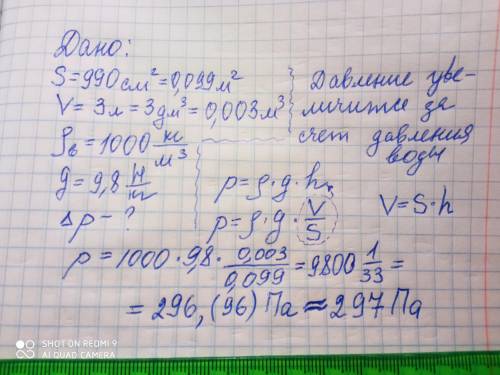 Дано:
S = 990 см² = 0,099 м²
V = 3 л = 3 дм³ = 0,003 м³
ρв = 1000 кг/м³
g = 9,8 Н/кг
Δp - ?
Давление уве-
личится за
счет давления
воды
p = ρ·g·h
p = ρ·g·V/S
V = S·h
p = 1000·9,8·0,003/0,099 = 9800 1/33 =
= 296,(96) Па ≈ 297 Па
SHOT ON REDMI 9
AI QUAD CAMERA